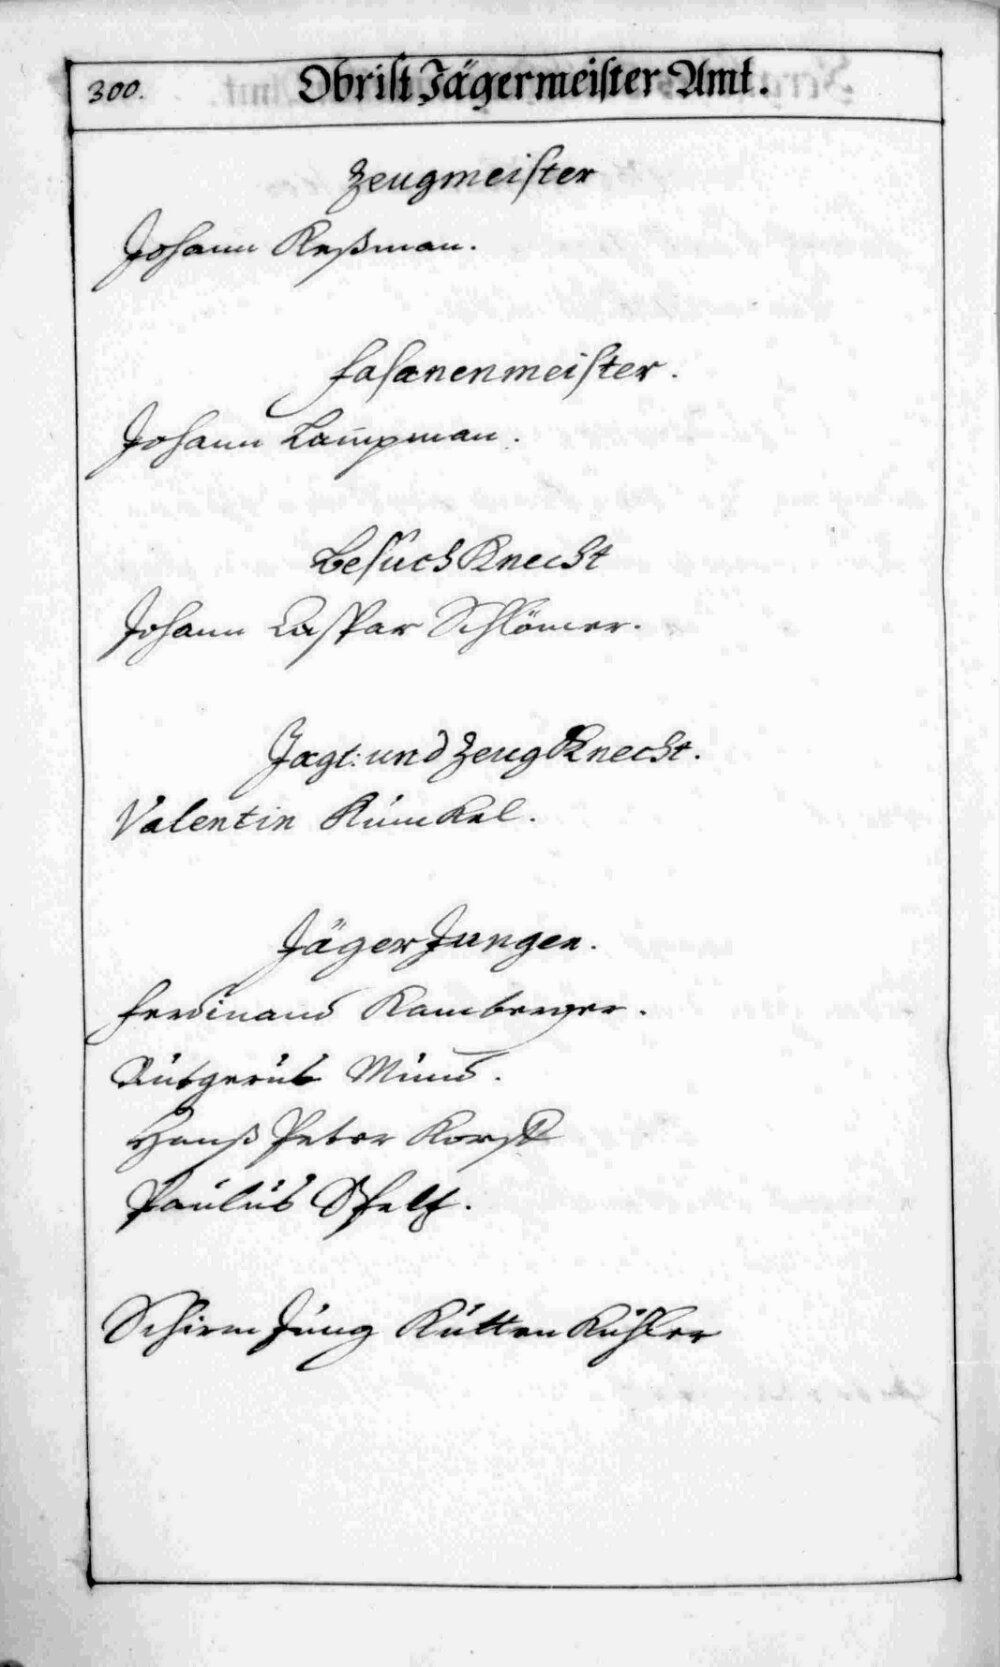 300.
Obrist Jägermeister Amt.
Zeugmeister
Johann Keßman.
Fasanenmeister.
Johann Lampman.
Besuch Knecht
Johann Caspar Schlömer.
Jagt: und Zeug Knecht.
Valentin Kunckel.
Jäger Jungen.
Ferdinand Kamberger.
Rutgerus Mund.
Hanß Peter Korst
Paulus
Schirm Jung Kütten